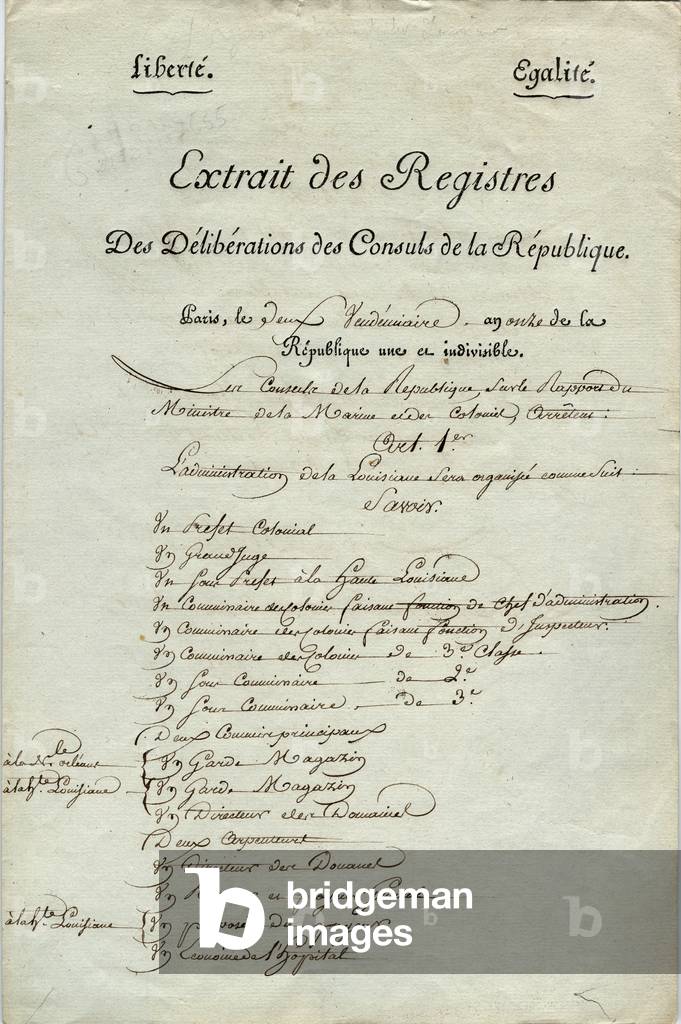 Liberté.
Egalité.
Extrait des Registres
Des Délibérations des Consuls de la République.
Paris, le deux Vendémiaire, an onze de la
République une et indivisible.
Les Consuls de la République, sur le Rapport du
Ministre de la Marine et des Colonies, Arrêtent:
Art. 1.er
L'administration de la Louisiane sera organisée comme suit
Savoir.
Un Prefet Colonial
Un Grand Juge
Un sous Prefet à la haute Louisiane
Un Commissaire de Colonies faisant fonction de Chef d'administration.
Un Commissaire des Colonies faisant fonction d'Inspecteur.
Un Commissaire des Colonies de 3.e Classe.
Un sous Commissaire de 2.e
Un sous Commissaire de 3.e
Deux Commis principaux
à la N.le orléans Un Garde Magazin
à la h.te Louisiane Un Garde Magazin
Un Directeur des Domaines
Deux Arpenteurs
Un Directeur des Douanes
Un et
à la h.te Louisiane Un
Un Econome de l'hopital
b bridgeman
images